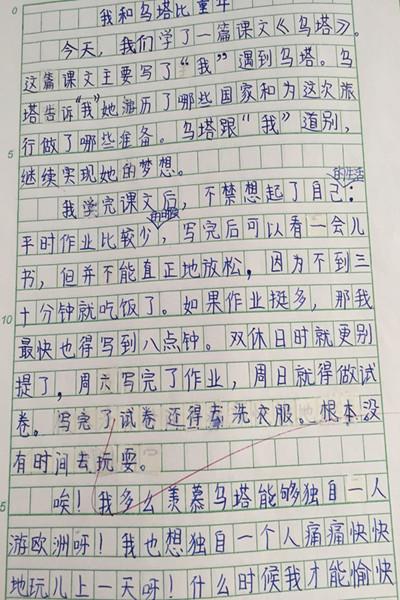 我和乌塔比童年
今天，我们学了一篇课文《乌塔》。
这篇课文主要写了“我”遇到乌塔。乌
塔告诉“我”她游历了哪些国家和为这次旅
行做了哪些准备。乌塔跟“我”道别，
继续实现她的梦想。
我学完课文后，不禁想起了自己的生活：
平时作业比较少，写完后可以看一会儿
书，但并不能真正地放松，因为不到三
十分钟就吃饭了。如果作业挺多，那我
最快也得写到八点钟。双休日时就更别
提了，周六写完了作业，周日就得做试
卷。写完了试卷还得去洗衣服。根本没
有时间去玩耍。
唉！我多么羡慕乌塔能够独自一人
游欧洲呀！我也想独自一个人痛痛快快
地玩儿上一天呀！什么时候我才能愉快
0
5
10
5